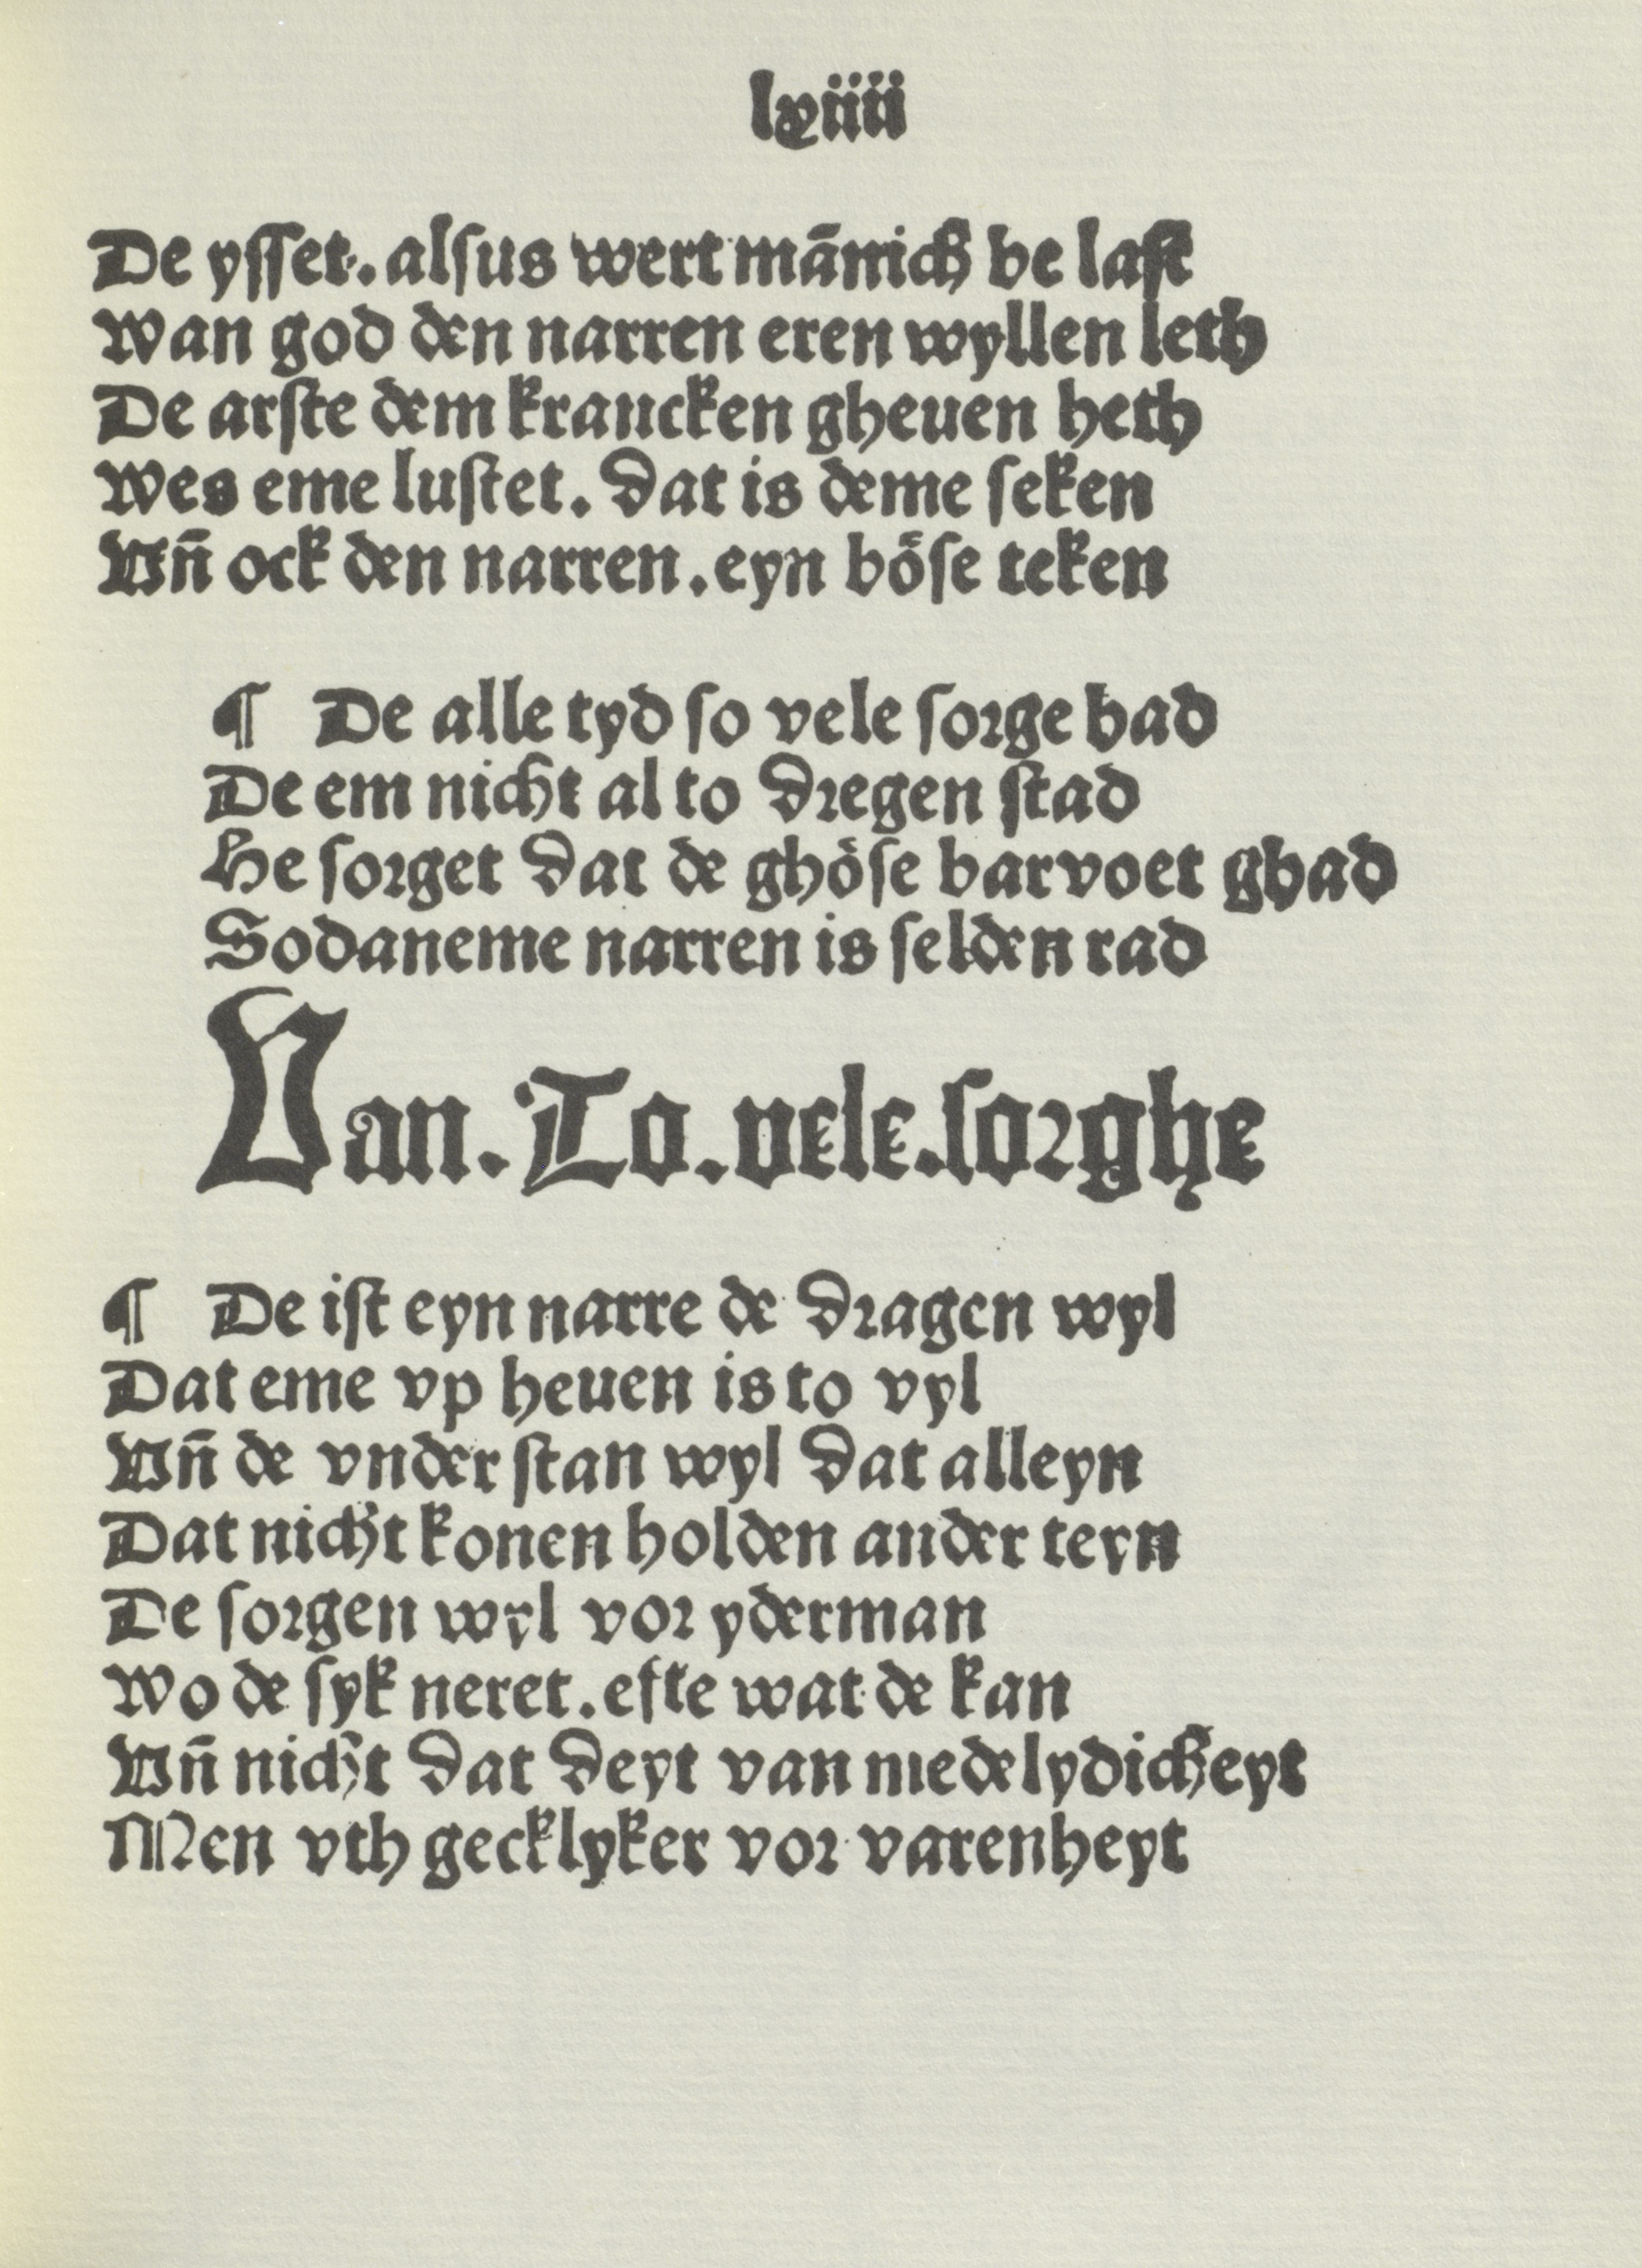 lxiiii
De ysset. alsus wert mānich be last
Wan god den narren eren wyllen leth
De arste dem krancken gheuen heth
Wes eme lustet. dat is deme seken
Vn̄ ock den narren. eyn böse teken
¶ De alle tyd so vele sorge had
De em nicht al to dregen stad
He sorget dat de ghöse barvoet ghad
Sodaneme narren is selden rad
Van. To. vele. sorghe
¶ De ist eyn narre de dragen wyl
Dat eme vp heuen is to vyl
Vn̄ de vnder stan wyl dat alleyn
Dat nicht konen holden ander teyn
De sorgen wyl vor yderman
Wo de syk neret. efte wat de kan
Vn̄ nicht dat deyt van medelydicheyt
Men vth gecklyker vor varenheyt